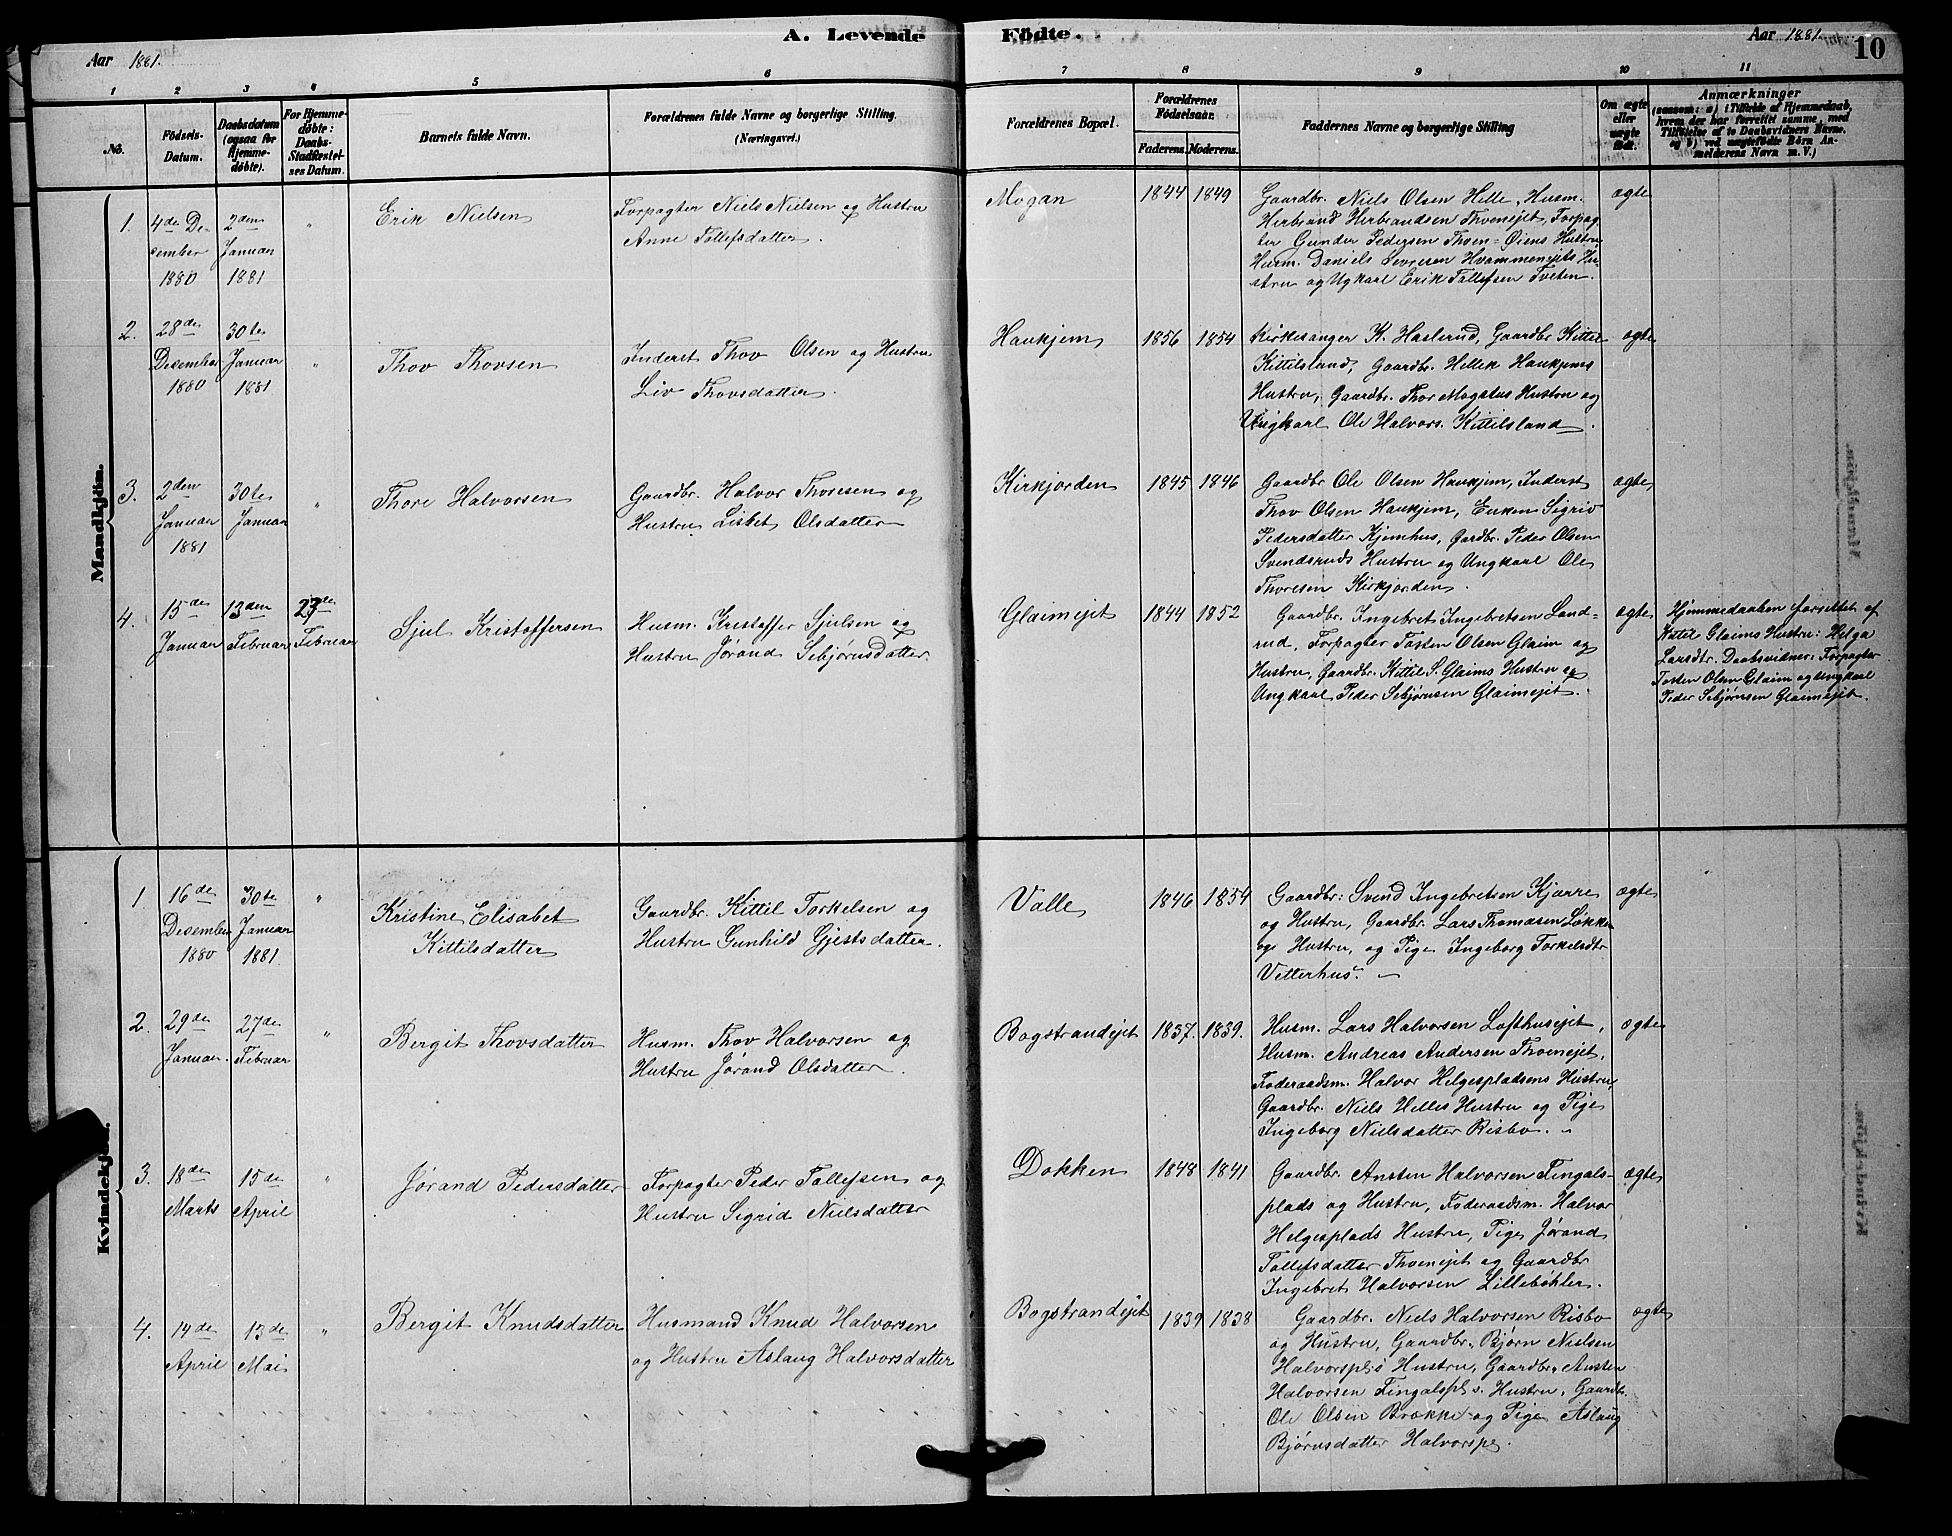 A. Levende Fødte.
Aar 1881.
Aar 1881.
10
1 2 3 4 5 6 7 8 9 10 11
No.
Fødsels-Datum.
Daabsdatum (ogsaa for Hjemme-døbte).
For Hjemme-døbte: Daabs-Stadfæstel-ses Datum.
Barnets fulde Navn.
Forældrenes fulde Navne og borgerlige Stilling.
(Næringsvei.)
Forældrenes Bopæl.
Forældrenes Fødselsaar.
Faderens. Moderens.
Faddernes Navne og borgerlige Stilling
Om ægte eller uægte født.
Anmærkninger
(saasom: a) i Tilfælde af Hjemmedaab,
hvem der har forrettet samme, med
Tilføielse af to Daabsvidners Navne,
og b) ved uægtefødte Børn An-
melderens Navn m. V.)
Mandkjön.
1.
4de De-
cember
1880
2den
Januar
1881
"
Erik Nielsen
Forpagter Niels Nielsen og Hustru
Anne Tollefsdatter.
Mogan
1844
1849
Gaardbr. Niels Olsen Helle, Husm.
Herbrand Herbrandsen Thoenejet, Forpag-
ter Gunder Pedersen Thoen-Øiens Hustru
Husm. Daniels Sevresen Hvammenejets Hu-
stru og Ugkarl Erik Tollefsen Tveten.
ægte
2.
28de
Desember
1880
30te
Januar
1881
"
Thov Thovsen
Inderst Thov Olsen og Hustru
Liv Thovsdatter.
Haukjem
1856
1854
Kirkesanger K. Haslerud, Gaardbr. Kittil
Kittilsland, Gaardbr. Hellek Haukjems
Hustru, Gaardbr. Thor Mogatus Hustru og
Ungkarl Ole Halvors. Kittilsland.
ægte
3.
2den
Januar
1881
30te
Januar
"
Thore Halvorsen
Gaardbr. Halvor Thoresen og
Hustru Lisbet Olsdatter
Kirkjorden
1845
1846
Gaardbr Ole Olsen Haukjem, Inderst
Thov Olsen Haukjem, Enken Sigrid
Pedersdatter Kjemhus, Gardbr. Peder Olsen
Svendsruds Hustru og Ungkarl Ole
Thoresen Kirkjorden.
ægte
4.
15de
Januar
13den
Februar
23de
Februar
Sjul Kristoffersen
Husm. Kristoffer Sjulsen og
Hustru Jørand Sebjørnsdatter.
Glaimejet
1844
1852
Gaardbr. Ingebret Ingebretsen Land-
rud, Forpagter Tosten Olsen Glaim og
Hustru, Gaardbr. Kittil S. Glaims Hustru og
Ungkarl Peder Sebjørnsen Glaimejet.
ægte
Hjemmedaaben forrettet af
Kittil Glaims Hustru: Helga
Larsdtr. Daabsvidner: Forpagter
Tosten Olsen Glaim og Ungkarl
Peder Sebjørnsen Glaimejet.
Kvindekjön.
1.
16de
Desember
1880
30te
Januar
1881
"
Kristine Elisabet
Kittilsdatter
Gaardbr. Kittil Torkelsen og
Hustru Gunhild Gjestsdatter.
Valle
1846
1854
Gaardbr: Svend Ingebretsen Kjærre
og Hustru, Gaardbr. Lars Thomasen Løkken
og Hustru, og Pige Ingeborg Torkelsdtr
Vetterhus.
ægte
2.
29de
Januar.
27de
Februar
"
Bergit Thovsdatter
Husm. Thov Halvorsen og
Hustru Jørand Olsdatter.
Bogstrandejet
1837.
1839.
Husm. Lars Halvorsen Lofthusejet,
Husm. Andreas Andersen Thoenejet,
Foderaadsm. Halvor Helgespladsens Hustru,
Gaardbr. Niels Helles Hustru og Pige
Ingeborg Nielsdatter Risbo.
ægte
3.
18de
Marts
15de
April
"
Jørand Pedersdatter
Forpagter Peder Tollefsen og
Hustru Sigrid Nielsdatter
Dokken
1848
1841
Gaardbr. Ansten Halvorsen Fingals-
plads og Hustru, Foderaadsm. Halvor
Helgesplads Hustru, Pige Jørand
Tollefsdatter Thoenejet og Gaardbr
Ingebret Halvorsen Lillebøkler.
ægte
4.
14de
April
13de
Mai
"
Bergit Knudsdatter
Husmand Knud Halvorsen
og Hustru Aslaug Halvorsdatter
Bogstrandejet
1839
1838
Gaardbr. Niels Halvorsen Risbo
og Hustru, Gaardbr. Bjørn Nielsen
Halvorspl.s Hustru, Gaardbr. Ansten
Halvorsen Fingalspl.s. Hustru, Gaardbr.
Ole Olsen Brække og Pige Aslaug
Bjørnsdatter Halvorspl.
ægte